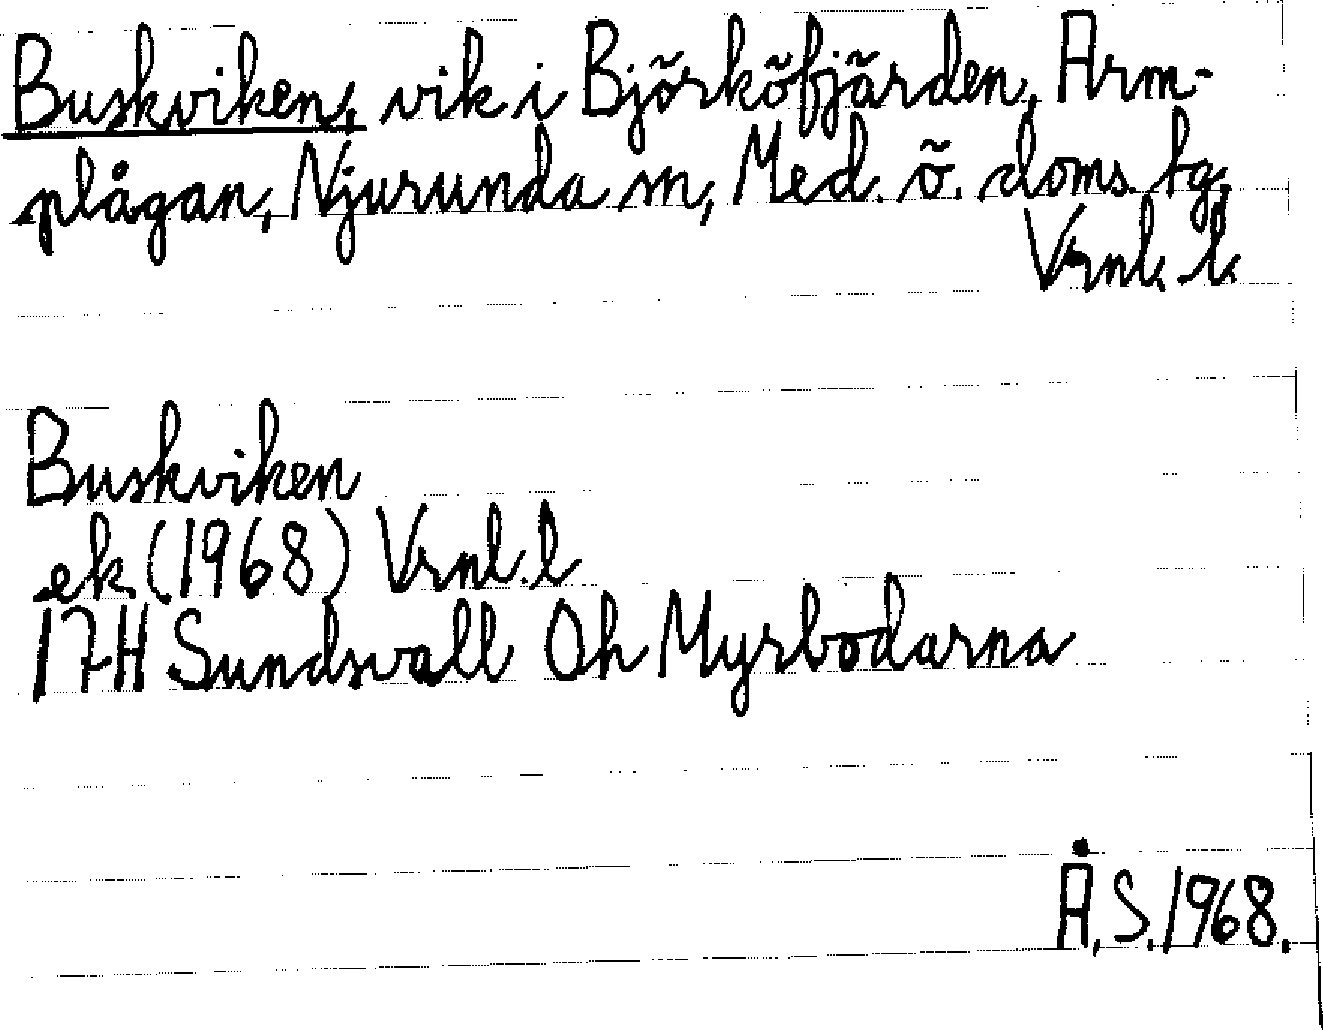 Buskviken, vik i Björköfjärden, Arm-
plågan, Njurunda sn, Med. ö. doms. tg,
Vrnl. l.
Buskviken
ek (1968) Vrnl. l
17H Sundsvall Oh Myrbodarna
Å.S. 1968.